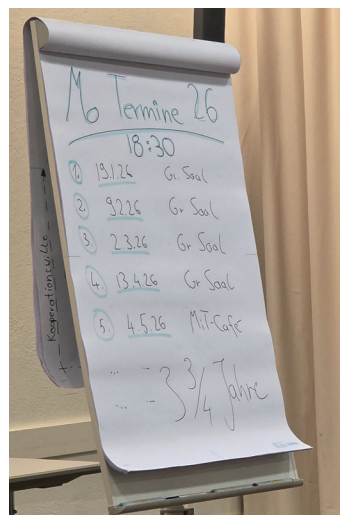 Mo Termine 26
18:30
1. 19.1.26 Gr. Saal
2. 9.2.26 Gr Saal
3. 2.3.26 Gr Saal
4. 13.4.26 Gr Saal
5. 4.5.26 MiT-Cafe
... - 3 3/4 Jahre
... -
Kooperationsville